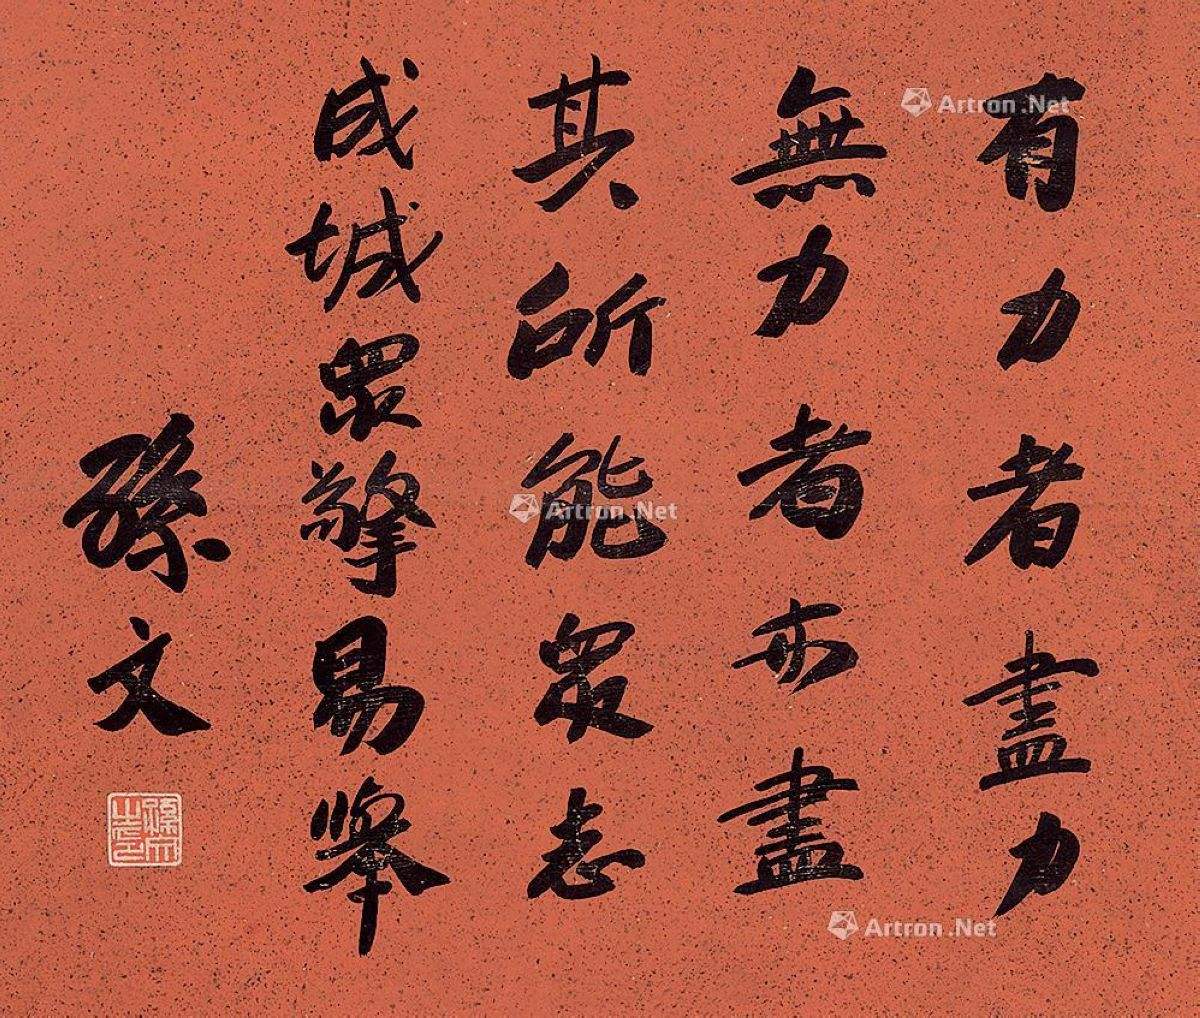 有力者盡力
無力者亦盡
其所能眾志
成城眾擎易舉
孫文
孫文之印
Artron.Net
Artron.Net
Artron.Net